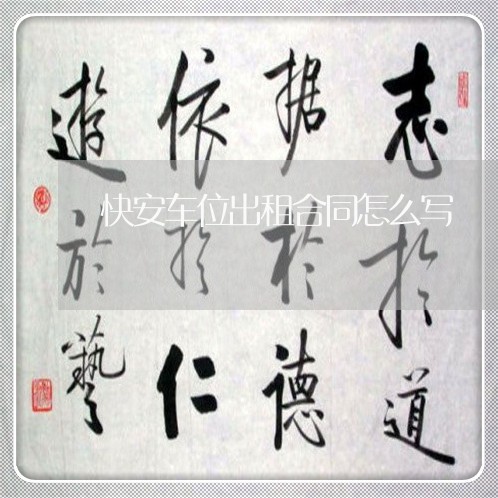 志於道
据於德
依於仁
遊於藝
快安车位出租合同怎么写